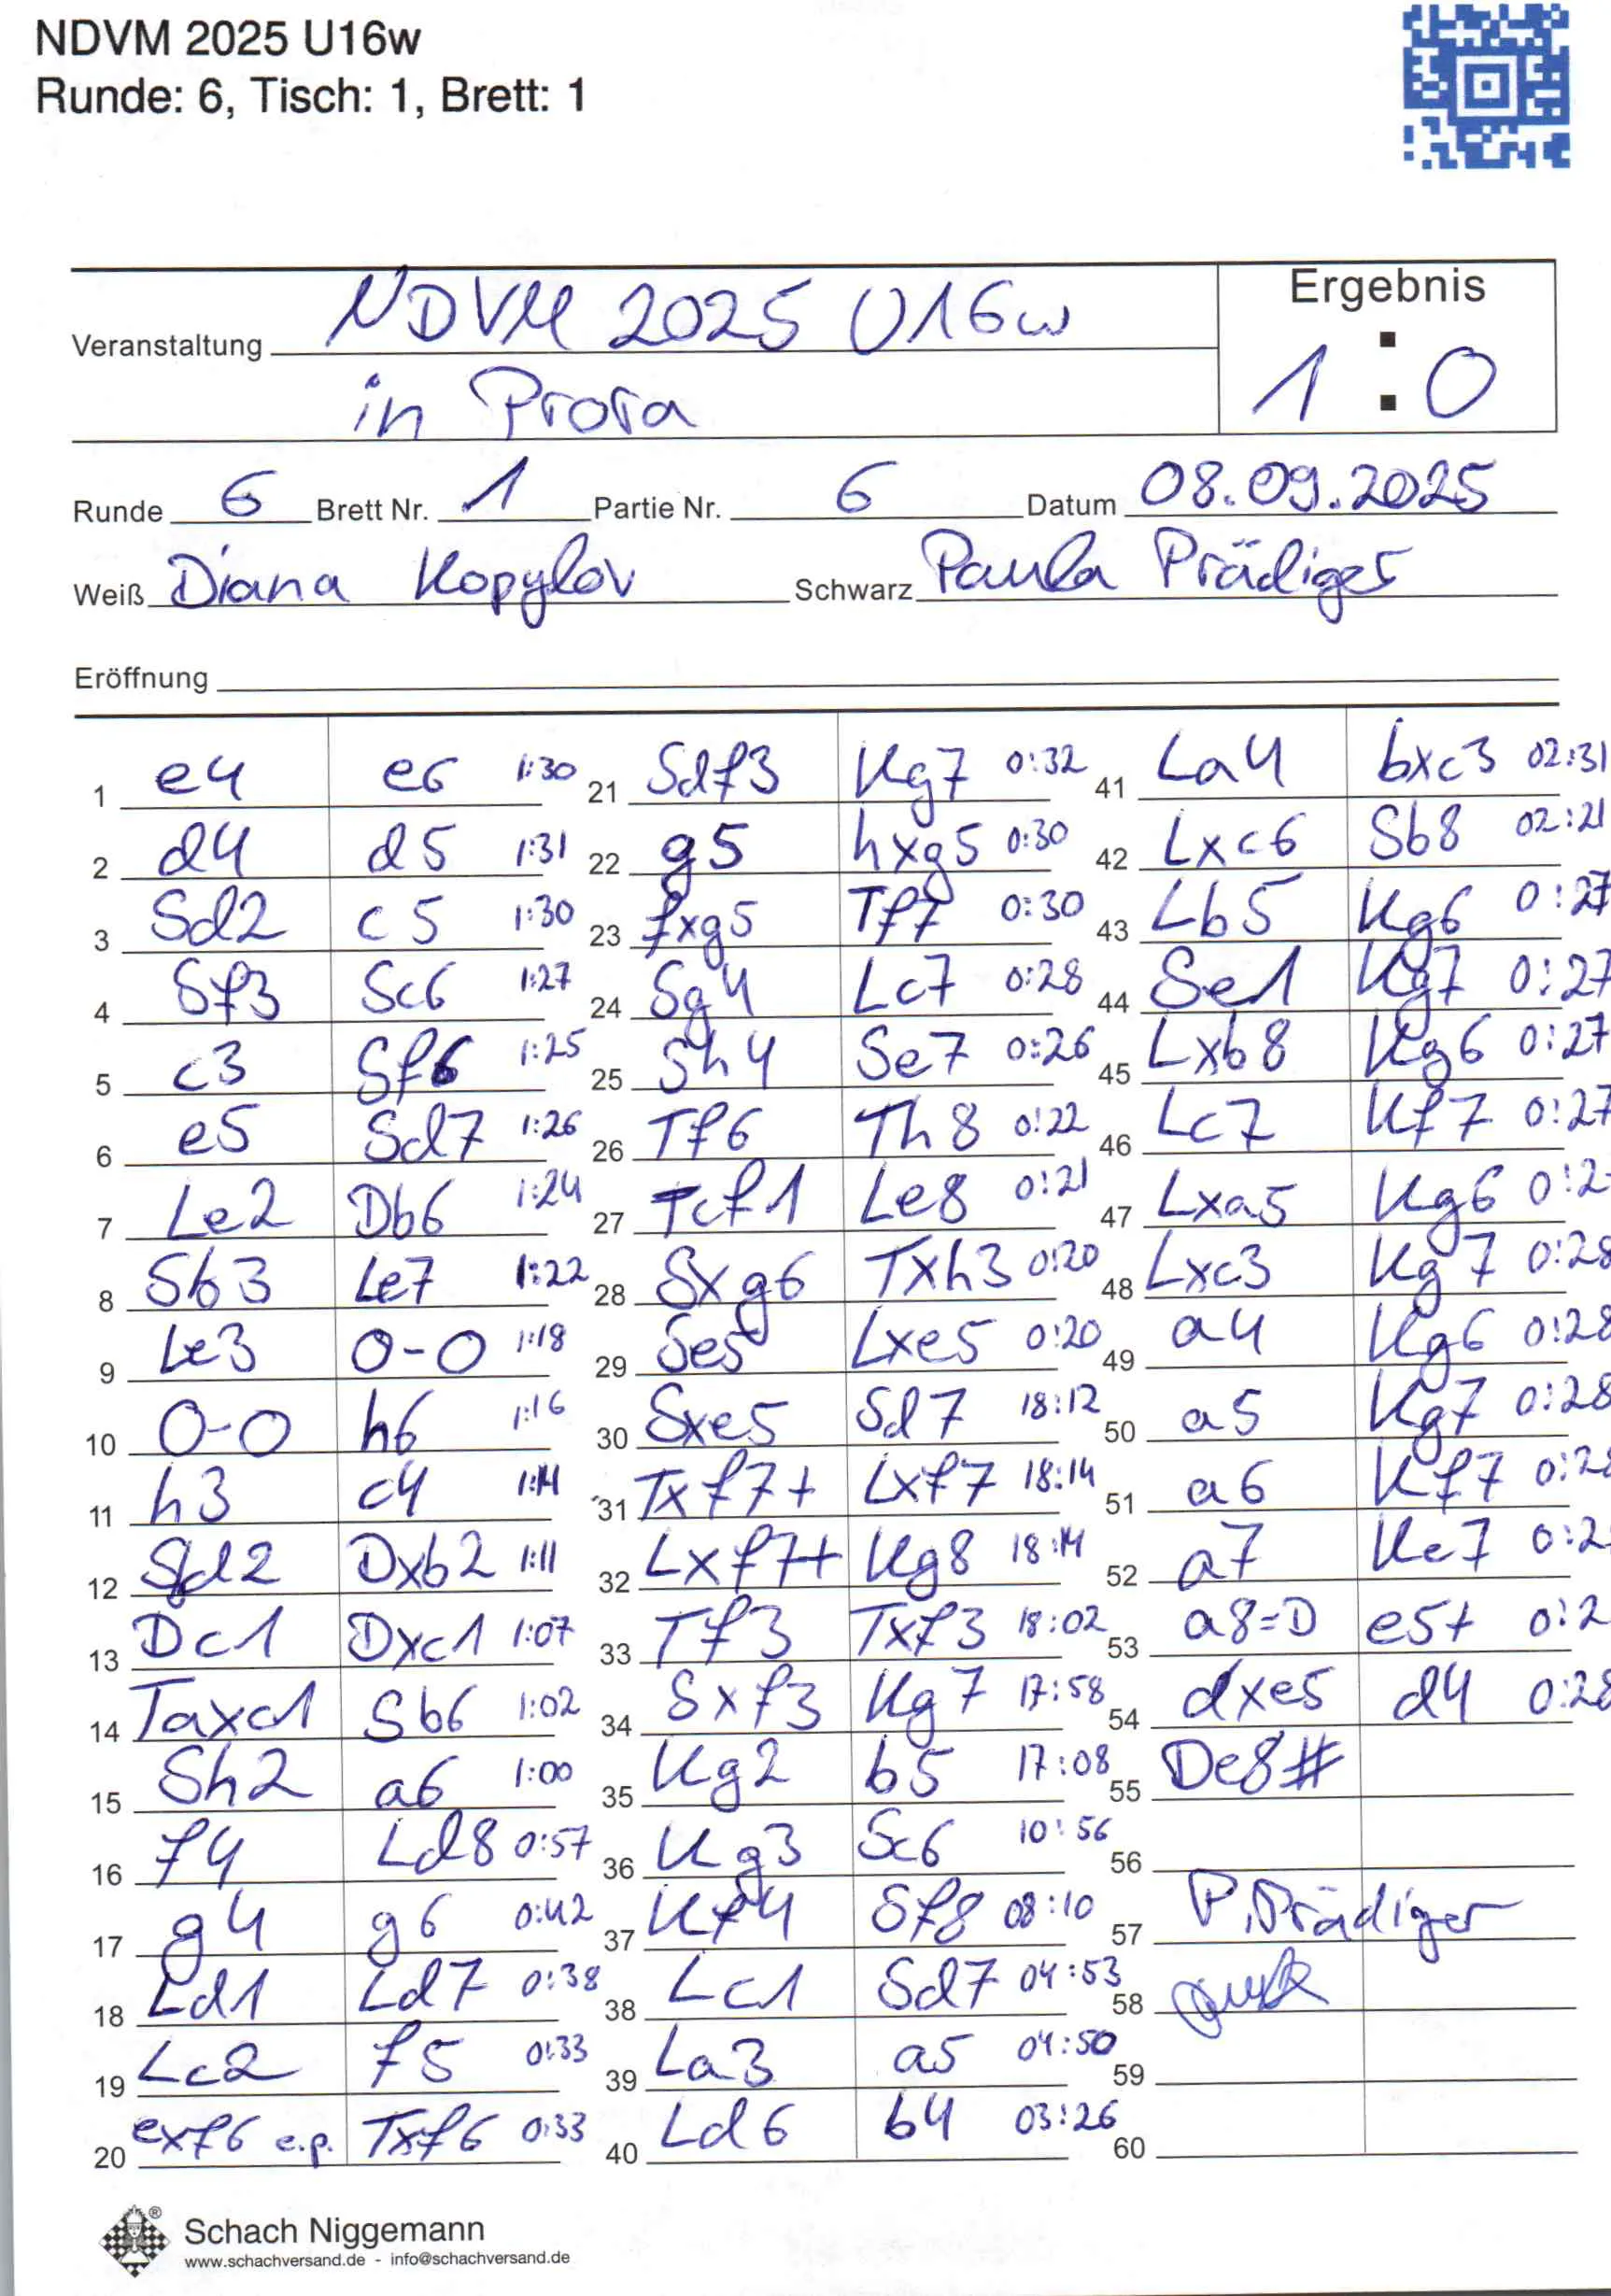 NDVM 2025 U16w
Runde: 6, Tisch: 1, Brett: 1
Ergebnis
Veranstaltung NDVM 2025 U16w
in Prora
1 : 0
Runde 6 Brett Nr. 1 Partie Nr. 6 Datum 08.09.2025
Weiß Diana Kopylov Schwarz Paula Prädiger
Eröffnung
1 e4 e6 1:30
2 d4 d5 1:31
3 Sd2 c5 1:30
4 Sf3 Sc6 1:27
5 c3 Sf6 1:25
6 e5 Sd7 1:26
7 Le2 Db6 1:24
8 Sb3 Le7 1:22
9 Le3 0-0 1:18
10 0-0 h6 1:16
11 h3 c4 1:14
12 Sfd2 Dxb2 1:11
13 Dc1 Dxc1 1:07
14 Taxc1 Sb6 1:02
15 Sh2 a6 1:00
16 f4 Ld8 0:57
17 g4 g6 0:42
18 Ld1 Ld7 0:38
19 Lc2 f5 0:33
20 exf6 e.p. Txf6 0:33
21 Sdf3 Kg7 0:32
22 g5 hxg5 0:30
23 fxg5 Tf7 0:30
24 Sg4 Lc7 0:28
25 Sh4 Se7 0:26
26 Tf6 Th8 0:22
27 Tcf1 Le8 0:21
28 Sxg6 Txh3 0:20
29 Se5 Lxe5 0:20
30 Sxe5 Sd7 18:12
31 Txf7+ Lxf7 18:14
32 Lxf7+ Kg8 18:14
33 Tf3 Txf3 18:02
34 Sxf3 Kg7 17:58
35 Kg2 b5 17:08
36 Kg3 Sc6 10:56
37 Kf4 Sf8 08:10
38 Lc1 Sd7 04:53
39 La3 a5 04:50
40 Ld6 b4 03:26
41 La4 bxc3 02:31
42 Lxc6 Sb8 02:21
43 Lb5 Kg6 0:27
44 Se1 Kg7 0:27
45 Lxb8 Kg6 0:27
46 Lc7 Kf7 0:27
47 Lxa5 Kg6 0:2
48 Lxc3 Kg7 0:28
49 a4 Kg6 0:28
50 a5 Kg7 0:28
51 a6 Kf7 0:28
52 a7 Ke7 0:2
53 a8=D e5+ 0:2
54 dxe5 d4 0:28
55 De8#
56
57 P. Prädiger
58
59
60
Schach Niggemann
www.schachversand.de - info@schachversand.de